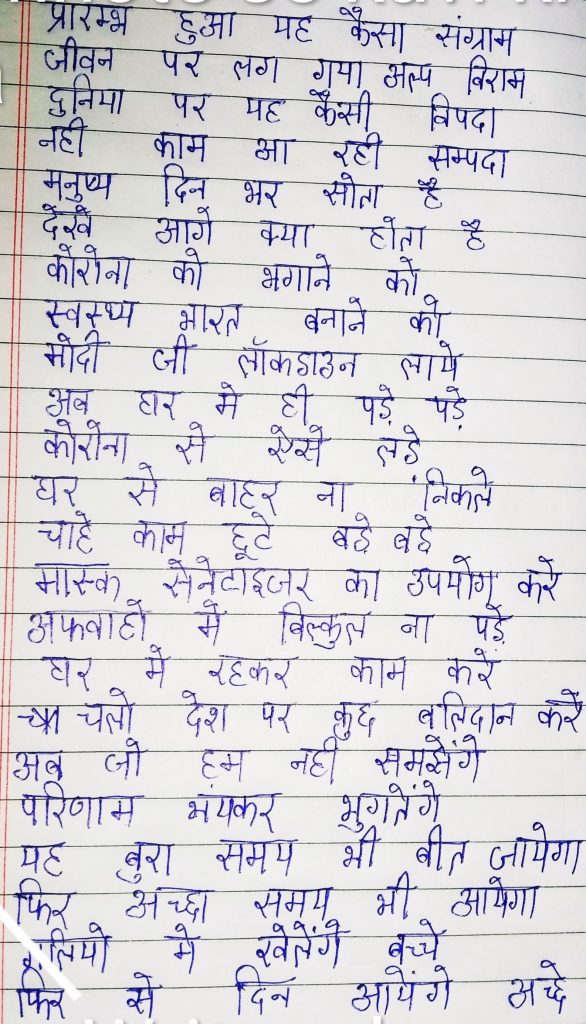 प्रारम्भ हुआ यह कैसा संग्राम
जीवन पर लग गया अल्प विराम
दुनिया पर यह कैसी विपदा
नही काम आ रही सम्पदा
मनुष्य दिन भर सोता है
देखे आगे क्या होता है
कोरोना को भगाने को
स्वस्थ्य भारत बनाने को
मोदी जी लॉकडाउन लाये
अब घर मे ही पड़े पड़े
कोरोना से ऐसे लड़े
घर से बाहर ना निकले
चाहे काम छूटे बड़े बड़े
मास्क सेनेटाइजर का उपयोग करे
अफवाहो में बिल्कुल ना पड़े
घर मे रहकर काम करें
चलो देश पर कुछ बलिदान करें
अब जो हम नही समझेंगे
परिणाम भंयकर भुगतेंगे
यह बुरा समय भी बीत जायेगा
फिर अच्छा समय भी आयेगा
मे खेलेंगे बच्चे
फिर से दिन आयेंगे अच्छे